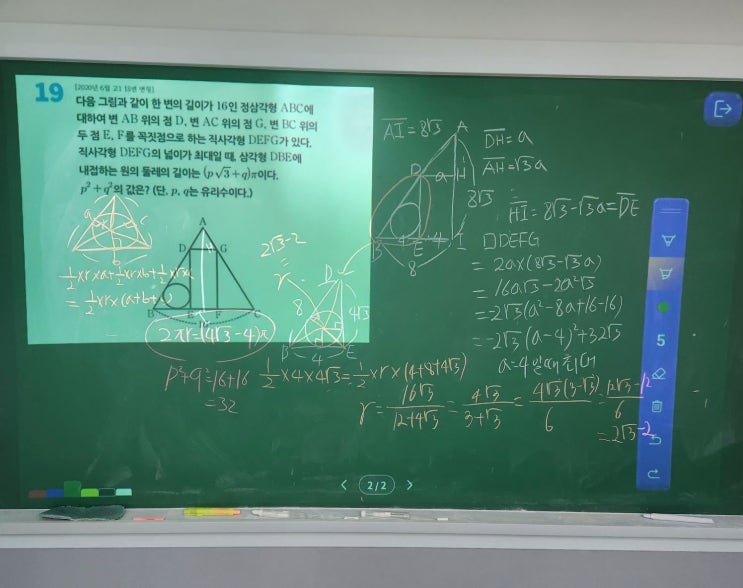 19
[2020년 6월 고1 18번 변형]
다음 그림과 같이 한 변의 길이가 16인 정삼각형 ABC에
대하여 변 AB 위의 점 D, 변 AC 위의 점 G, 변 BC 위의
두 점 E, F를 꼭짓점으로 하는 직사각형 DEFG가 있다.
직사각형 DEFG의 넓이가 최대일 때, 삼각형 DBE에
내접하는 원의 둘레의 길이는 (p√3+q)π이다.
p²+q²의 값은? (단, p, q는 유리수이다.)
a c
b
½×r×a+½×r×b+½×r×c
=½×r×(a+b+c)
A
D G
B E F C
16
2πr=(4√3-4)π
p²+q²=16+16
=32
2√3-2
=
r
D
8 4√3
B 4 E
½×4×4√3=½×r×(4+8+4√3)
r=16√3/(12+4√3)=4√3/(3+√3)=4√3(3-√3)/6=(12√3-12)/6
=2√3-2
AI=8√3
A
D a H
8√3
B 4 E 4 I
8
DH=a
AH=√3a
HI=8√3-√3a=DE
□DEFG
=2a×(8√3-√3a)
=16a√3-2a²√3
=-2√3(a²-8a+16-16)
=-2√3(a-4)²+32√3
a=4일때 최대
5
2/2